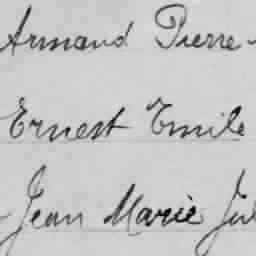 Armand Pierre
Ernest Emile
Jean Marie Jul